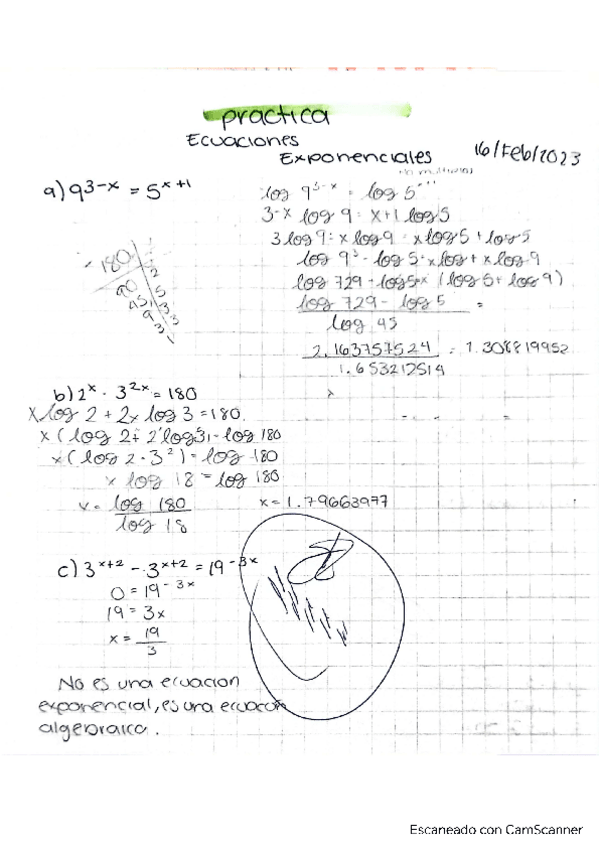 practica
Ecuaciones
Exponenciales
16/Feb/2023
a) 9^3-x = 5^x+1
log 9^3-x = log 5
3-x log 9 = x+1 log 5
3 log 9 = x log 9 = x log 5 + log 5
log 9³ - log 5 = x log + x log 9
log 729 - log 5 = x (log 5 + log 9)
log 729 - log 5 =
log 45
2.163757524 = 1.308819952
1.653212514
180
90
45
b) 2^x · 3^2x = 180
x log 2 + 2x log 3 = 180
x (log 2 + 2 log 3) = log 180
x (log 2 · 3²) = log 180
x log 18 = log 180
x = log 180
log 18
x = 1.79663977
c) 3^x+2 - 3^x+2 = 19^-3x
0 = 19^-3x
19 = 3x
x = 19
3
No es una ecuacion
exponencial, es una ecuacion
algebraica.
Escaneado con CamScanner